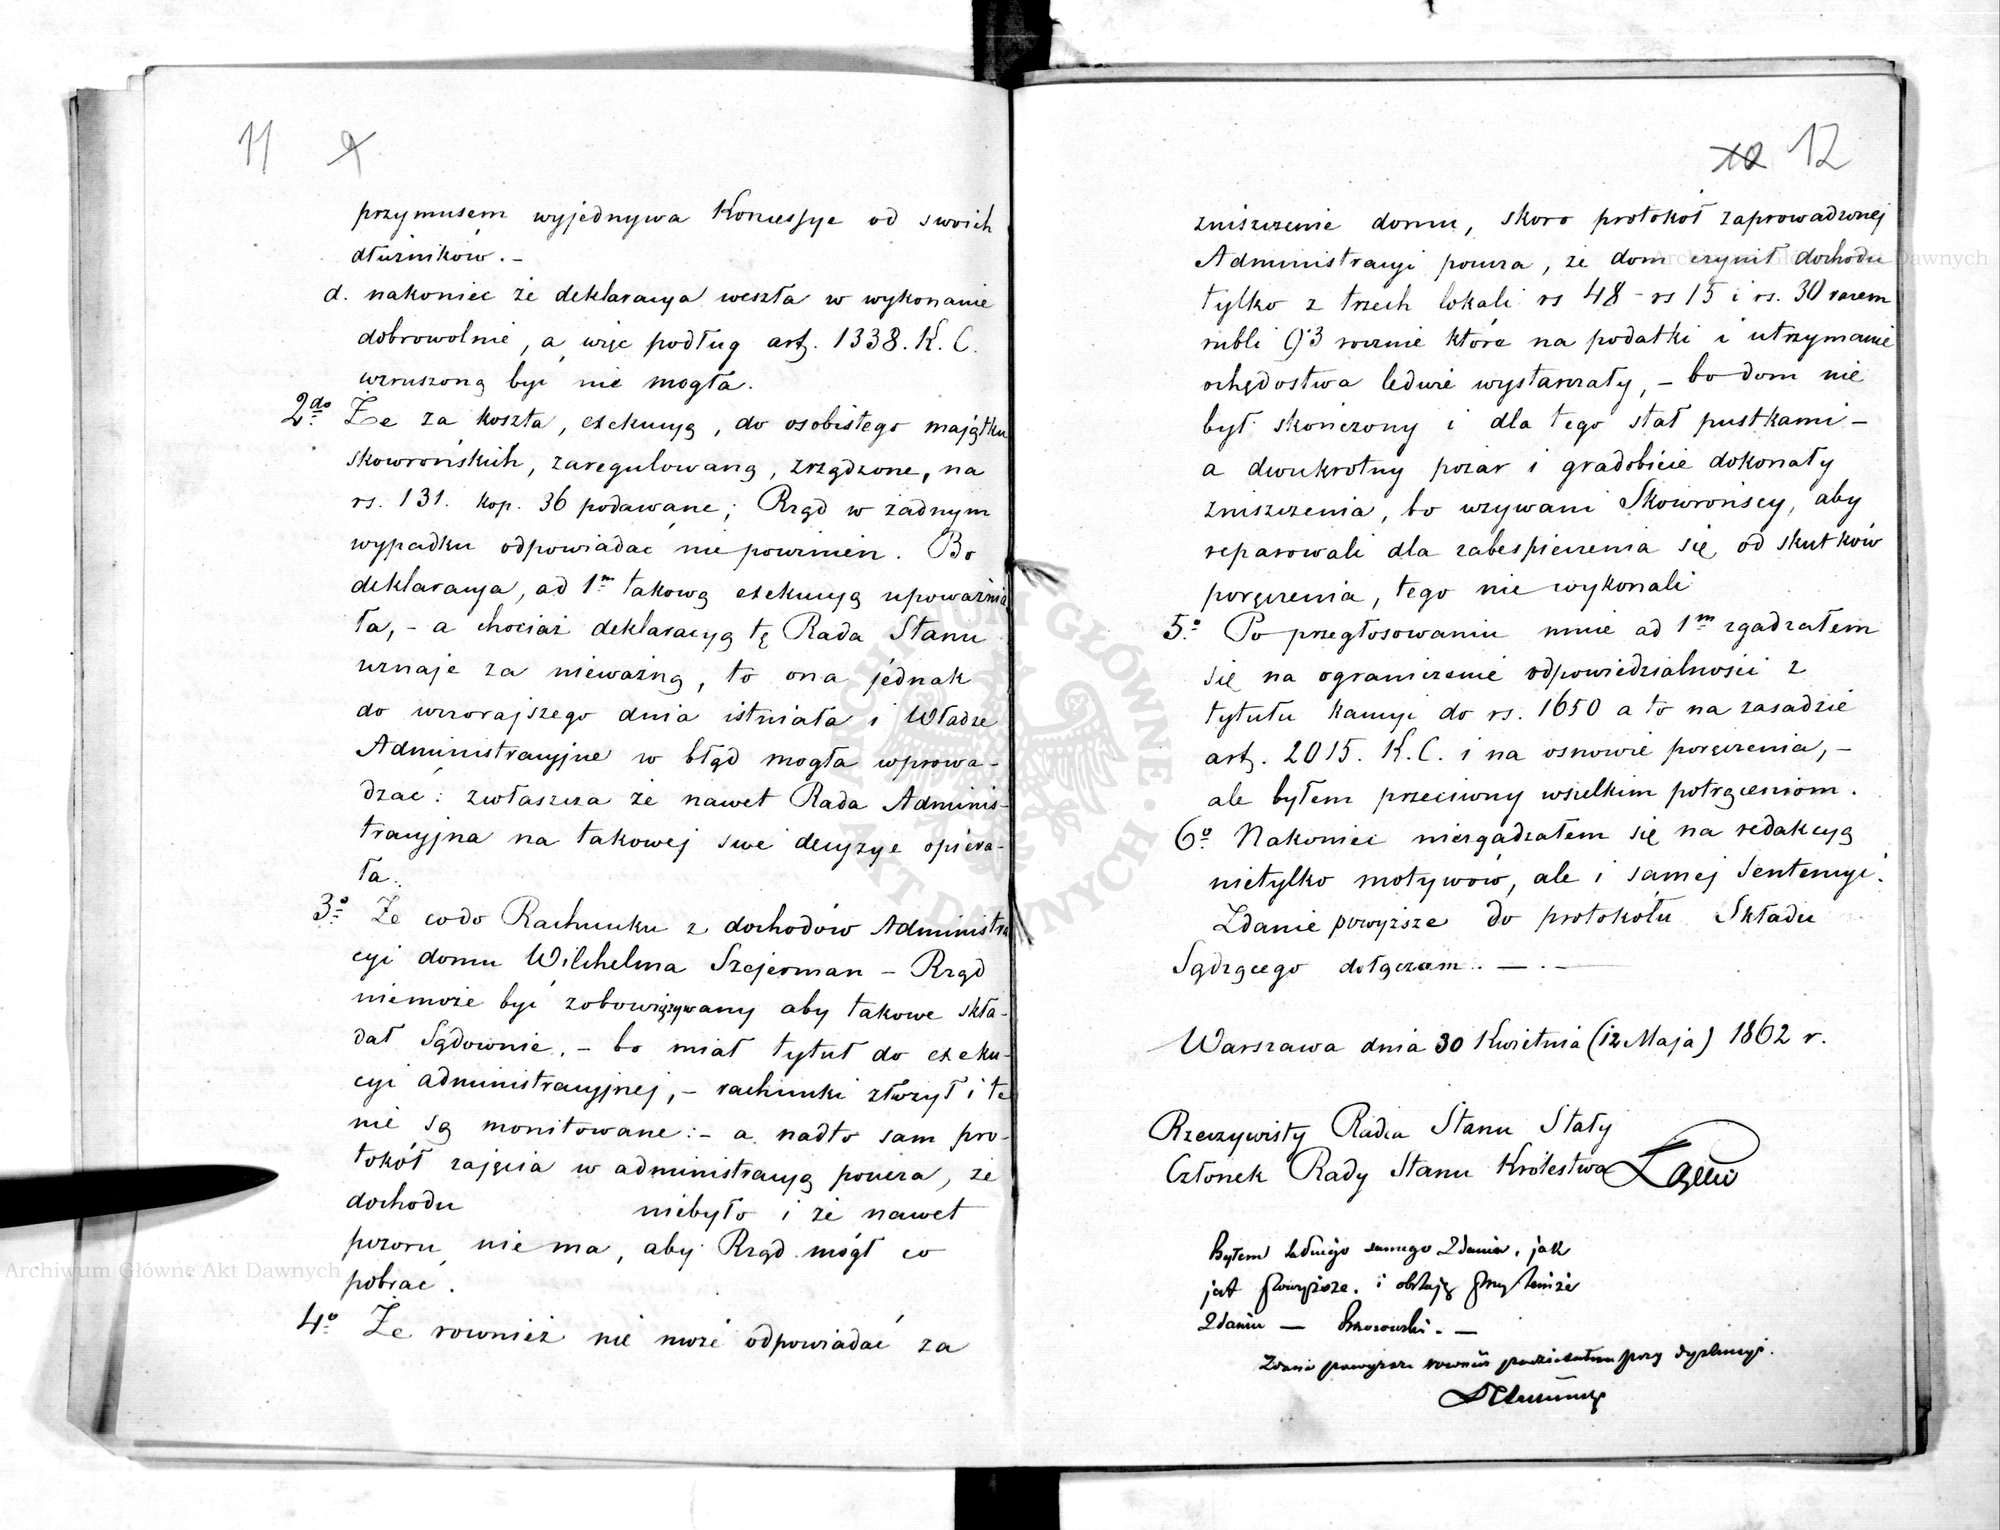 11
przymusem wyjednywa Koncessye od swoich
dłużników. –
d. nakoniec że deklaracya weszła w wykonanie
dobrowolnie, a więc podług art. 1338. K. C.
wzruszoną być nie mogła.
2do Że za koszta, exekucyą, do osobistego majątku
Skowrońskich, zaregulowaną, zrządzone, na
rs. 131. kop. 36 podawane; Rząd w żadnym
wypadku odpowiadać nie powinien. Bo
deklaracya, ad 1m takową exekucyą upoważnia
ła, – a chociaż deklaracyą tę Rada Stanu
uznaje za nieważną, to ona jednak
do wczorajszego dnia istniała i Władze
Administracyjne w błąd mogła wprowa-
dzać: zwłaszcza że nawet Rada Adminis-
tracyjna na takowej swe decyzye opiera-
ła.
3o Że codo Rachunku z dochodów Administra
cyi domu Wilchelma Szejerman – Rząd
niemoże być zobowiązywany aby takowe skła-
dał Sądownie. – bo miał tytuł do exeku-
cyi administracyjnej, – rachunki złożył i te
nie są monitowane: – a nadto sam pro-
tokół zajęcia w administracyą poucza, że
dochodu niebyło i że nawet
pozoru niema, aby Rząd mógł co
pobrać.
4o Że rownież nie może odpowiadać za
12
zniszczenie domu, skoro protokół zaprowadzonej
Administracyi poucza, że dom czynił dochodu
tylko z trzech lokali rs 48 – rs 15 i rs. 30 razem
rubli 93 rocznie które na podatki i utrzymanie
ochędostwa ledwie wystarczały, – bo dom nie
był skończony i dla tego stał pustkami –
a dwukrotny pożar i gradobicie dokonały
zniszczenia, bo wzywani Skowrońscy, aby
reparowali dla zabespieczenia się od skutków
poręczenia, tego nie wykonali
5o Po przegłosowaniu mnie ad 1m zgadzałem
się na ograniczenie odpowiedzialności z
tytułu kaucyi do rs. 1650 a to na zasadzie
art. 2015. K. C. i na osnowie poręczenia, –
ale byłem przeciwny wszelkim potrąceniom.
6o Nakoniec niezgadzałem się na redakcyą
nietylko motywów, ale i samej Sentencyi.
Zdanie powyższe do protokołu Składu
Sądzącego dołączam. – . –
Warszawa dnia 30 Kwietnia (12 Maja) 1862 r.
Rzeczywisty Radca Stanu Stały
Członek Rady Stanu Królestwa
Byłem tegoż samego Zdania, jak
jest powyższe. i obstaję przy temże
Zdaniu — Brzozowski. —
Zdanie powyższe rownież podzielałem przy dyskusyi.
Archiwum Główne Akt Dawnych
Archiwum Główne Akt Dawnych
ARCHIWUM GŁÓWNE AKT DAWNYCH